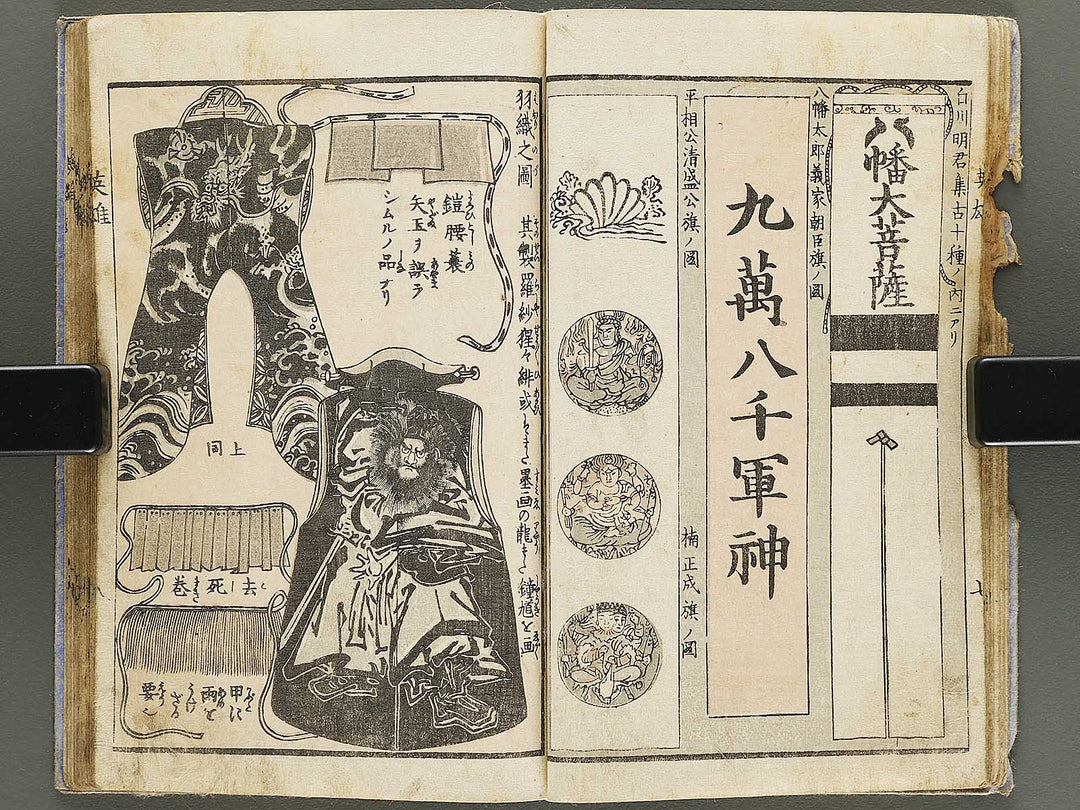 白川明君集古十種ノ内ニアリ
八幡大菩薩
八幡太郎義家朝臣旗ノ圖
九萬八千軍神
楠正成旗ノ圖
平相公清盛公旗ノ圖
羽織之圖
其製羅紗猩々緋或
墨画の龍
鐘馗を画
鎧腰蓑
矢玉ヲ誤ラ
シムルノ品ナリ
上同
甲に
雨を
うけ
ざる
要
英雄
七
八